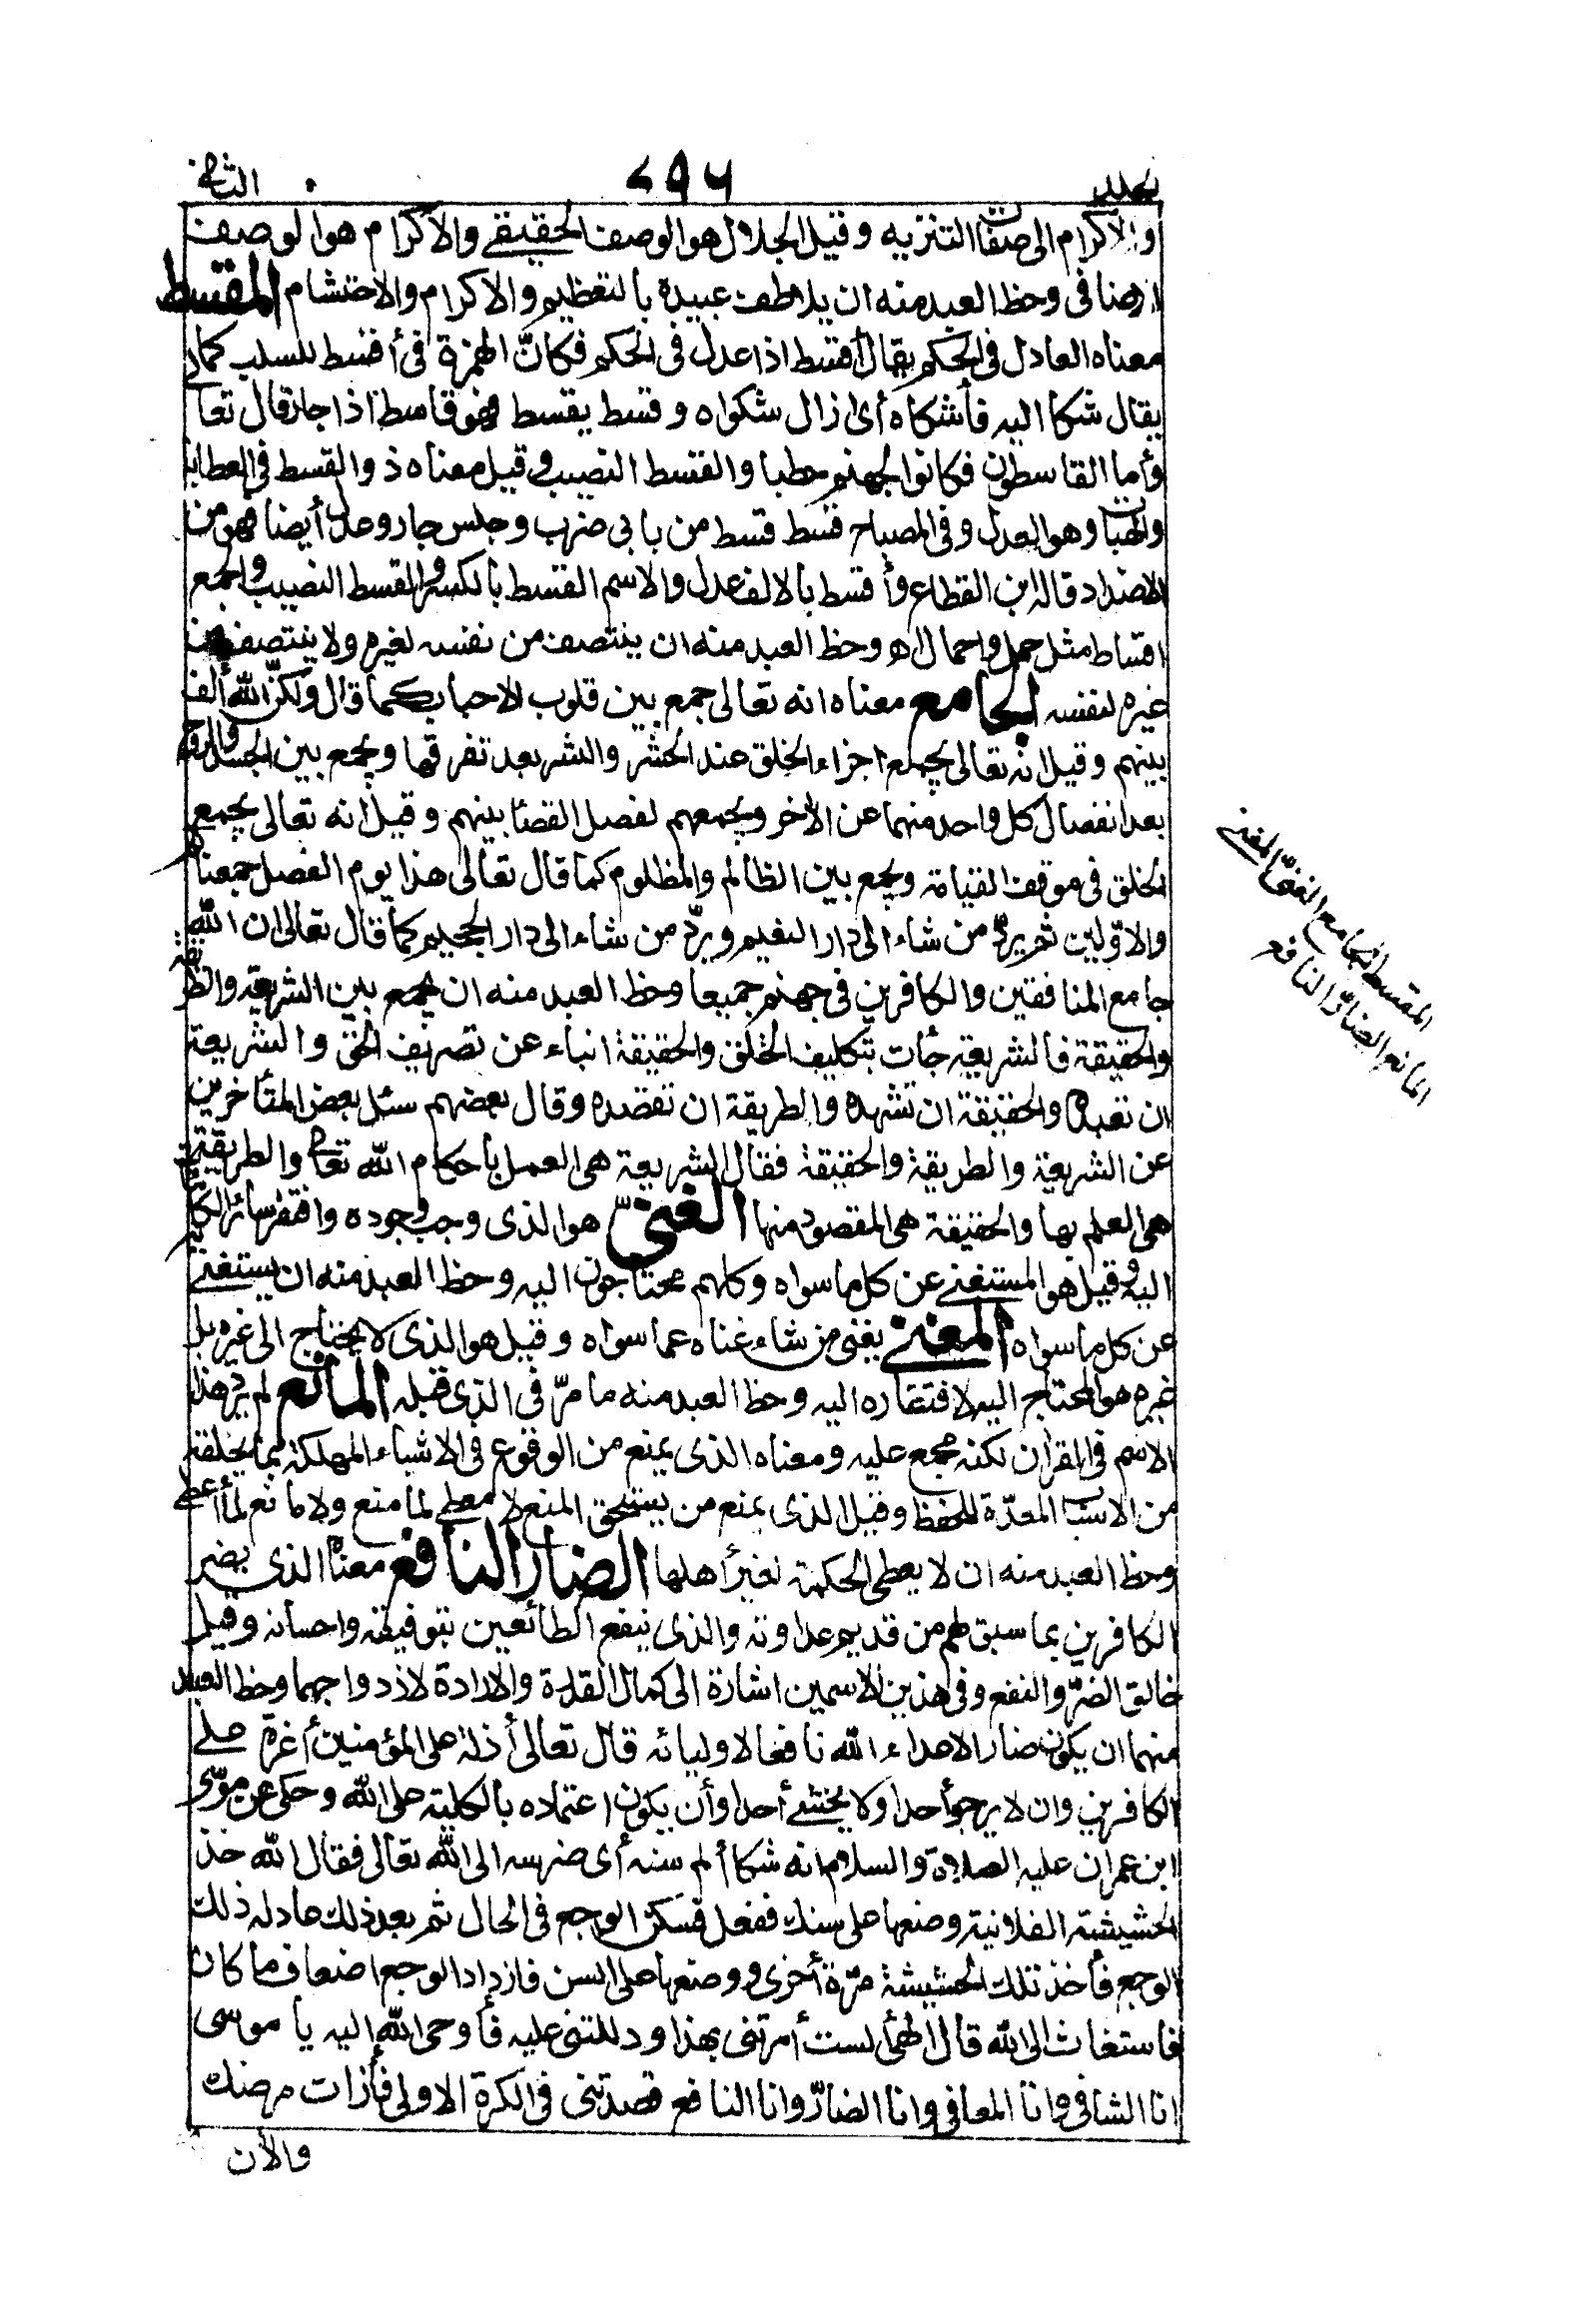 مجلد ٢٩٦ الثانى
والاكرام الى صفات التنزيه وقيل الجلال هو الوصف الحقيقى والاكرام هو الوصف
الاضافى وحظ العبد منه ان يلاطف عبيده بالتعظيم والاكرام والاحتشام المقسط
معناه العادل فى الحكم يقال أقسط اذا عدل فى الحكم فكانّ الهمزة فى أقسط للسلب كما
يقال شكا اليه فأشكاه أى ازال شكواه وقسط يقسط فهو قاسط اذا جار قال تعا
وأما القاسطون فكانوا لجهنم حطبا والقسط النصيب وقيل معناه ذو القسط فى العطايا
والهبات وهو العدل وفى المصباح قسط قسط من بابى ضرب وجلس جار وعدل أيضا فهو من
الاضداد قاله ابن القطاع وأقسط بالالف عدل والاسم القسط بالكسر والقسط النصيب والجمع
اقساط مثل حمل واحمال اه وحظ العبد منه ان ينتصف من نفسه لغيره ولا ينتصف من
غيره لنفسه الجامع معناه انه تعالى جمع بين قلوب الاحباب كما قال ولكنّ الله ألف
بينهم وقيل انه تعالى يجمع اجزاء الخلق عند الحشر والنشر بعد تفرقها ويجمع بين الجسد والروح
بعد انفصال كل واحد منهما عن الآخر ويجمعهم لفصل القضا بينهم وقيل انه تعالى يجمع
الخلق فى موقف القيامة ويجمع بين الظالم والمظلوم كما قال تعالى هذا يوم الفصل جمعناكم
والاوّلين ثم يردّ من شاء الى دار النعيم ويردّ من شاء الى دار الجحيم كما قال تعالى ان الله
جامع المنافقين والكافرين فى جهنم جميعا وحظ العبد منه ان يجمع بين الشريعة والطريقة
والحقيقة فالشريعة جأت بتكليف الخلق والحقيقة انباء عن تصريف الحق والشريعة
ان تعبده والحقيقة ان تشهده والطريقة ان تقصده وقال بعضهم سئل بعض المتأخرين
عن الشريعة والطريقة والحقيقة فقال الشريعة هى العمل بأحكام الله تعالى والطريقة
هى العلم بها والحقيقة هى المقصود منها الغنىّ هو الذى وجب وجوده وافتقر سائر الكائنات
اليه وقيل هو المستغنى عن كل ما سواه وكلهم محتاجون اليه وحظ العبد منه ان يستغنى
عن كل ما سواه المغنى يغنى من شاء غناه عما سواه وقيل هو الذى لا يحتاج الى غيره بل
غيره هو المحتاج اليه لافتقاره اليه وحظ العبد منه ما مرّ فى الذى قبله المانع لم يرد هذا
الاسم فى القرآن لكنه مجمع عليه ومعناه الذى يمنع من الوقوع فى الاشياء المهلكة بما يخلقه
من الاسباب المعدّة للحفظ وقيل الذى يمنع من يستحق المنع لا معطى لما منع ولا مانع لما أعطى
وحظ العبد منه ان لا يعطى الحكمة لغير أهلها الضار النافع معناه الذى يضر
الكافرين بما سبق لهم من قديم عداوته والذى ينفع الطائعين بتوفيقه واحسانه وقيل
خالق الضرّ والنفع وفى هذين الاسمين اشارة الى كمال القدرة والارادة لازدواجهما وحظ العبد
منهما ان يكون ضارا لاعداء الله نافعا لاوليائه قال تعالى أذلة على المؤمنين أعزة على
الكافرين وان لا يرجو أحدا ولا يخشى أحدا وأن يكون اعتماده بالكلية على الله وحكى عن موسى
ابن عمران عليه الصلاة والسلام انه شكا ألم سنه أى ضرسه الى الله تعالى فقال الله خذ
الحشيشة الفلانية وضعها على سنك ففعل فسكن الوجع فى الحال ثم بعد ذلك عاد له ذلك
الوجع فأخذ تلك الحشيشة مرّة أخرى ووضعها على السن فازداد الوجع اضعاف ما كان
فاستغاث الى الله قال الهى ألست أمرتنى بهذا ودللتنى عليه فأوحى الله اليه يا موسى
انا الشافى وانا المعافى وانا الضارّ وانا النافع قصدتنى فى الكرة الاولى فأزلت مرضك
والآن
المقسط الجامع الغنىّ المغنى
المانع الضارّ النافع